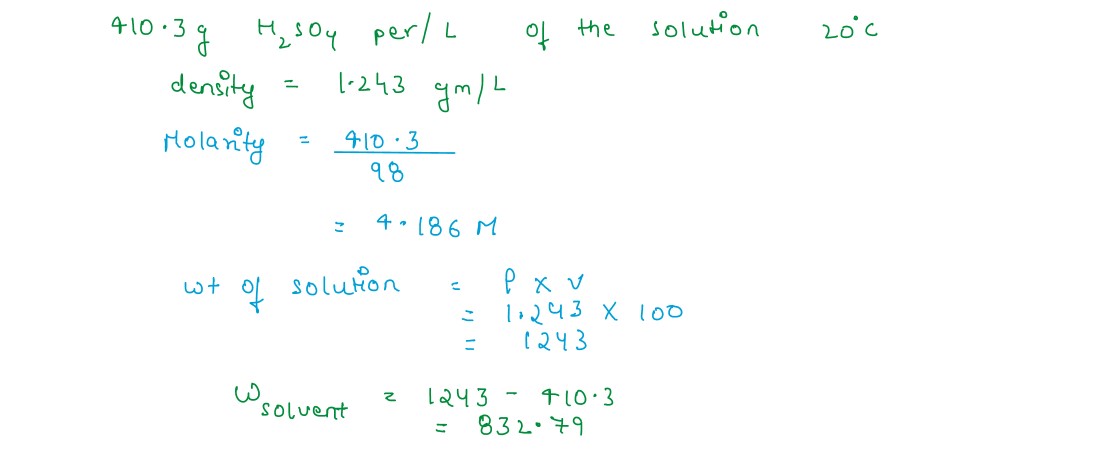 410.3 g H₂SO₄ per/L of the solution 20°C
density = 1.243 gm/L
Molarity = 410.3
98
= 4.186 M
wt of solution = ρ x v
= 1.243 x 100
= 1243
W solvent = 1243 - 410.3
= 832.79